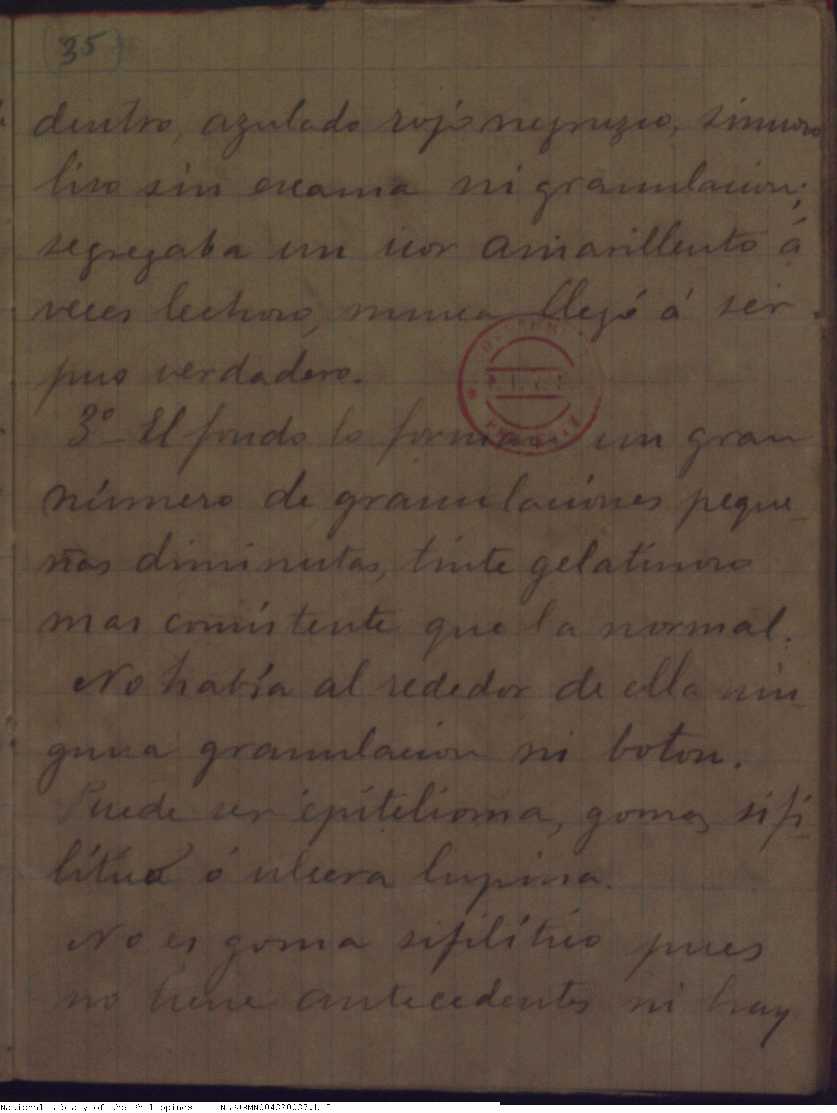 (35)
dentro, azulado rojo negruzco, sinuoso
liso sin escama ni granulacion;
segregaba un icor amarillento á
veces lechoso, nunca llegó á ser
pus verdadero.
3º- El fondo lo forman un gran
número de granulaciones peque-
ñas diminutas, tinte gelatinoso
mas consistente que la normal.
No había al rededor de ella nin-
guna granulacion ni boton.
Puede ser epitelioma, goma sifi-
lítica ó ulcera lupina.
No es goma sifilítico pues
no tiene antecedentes ni hay
National Library of the Philippines